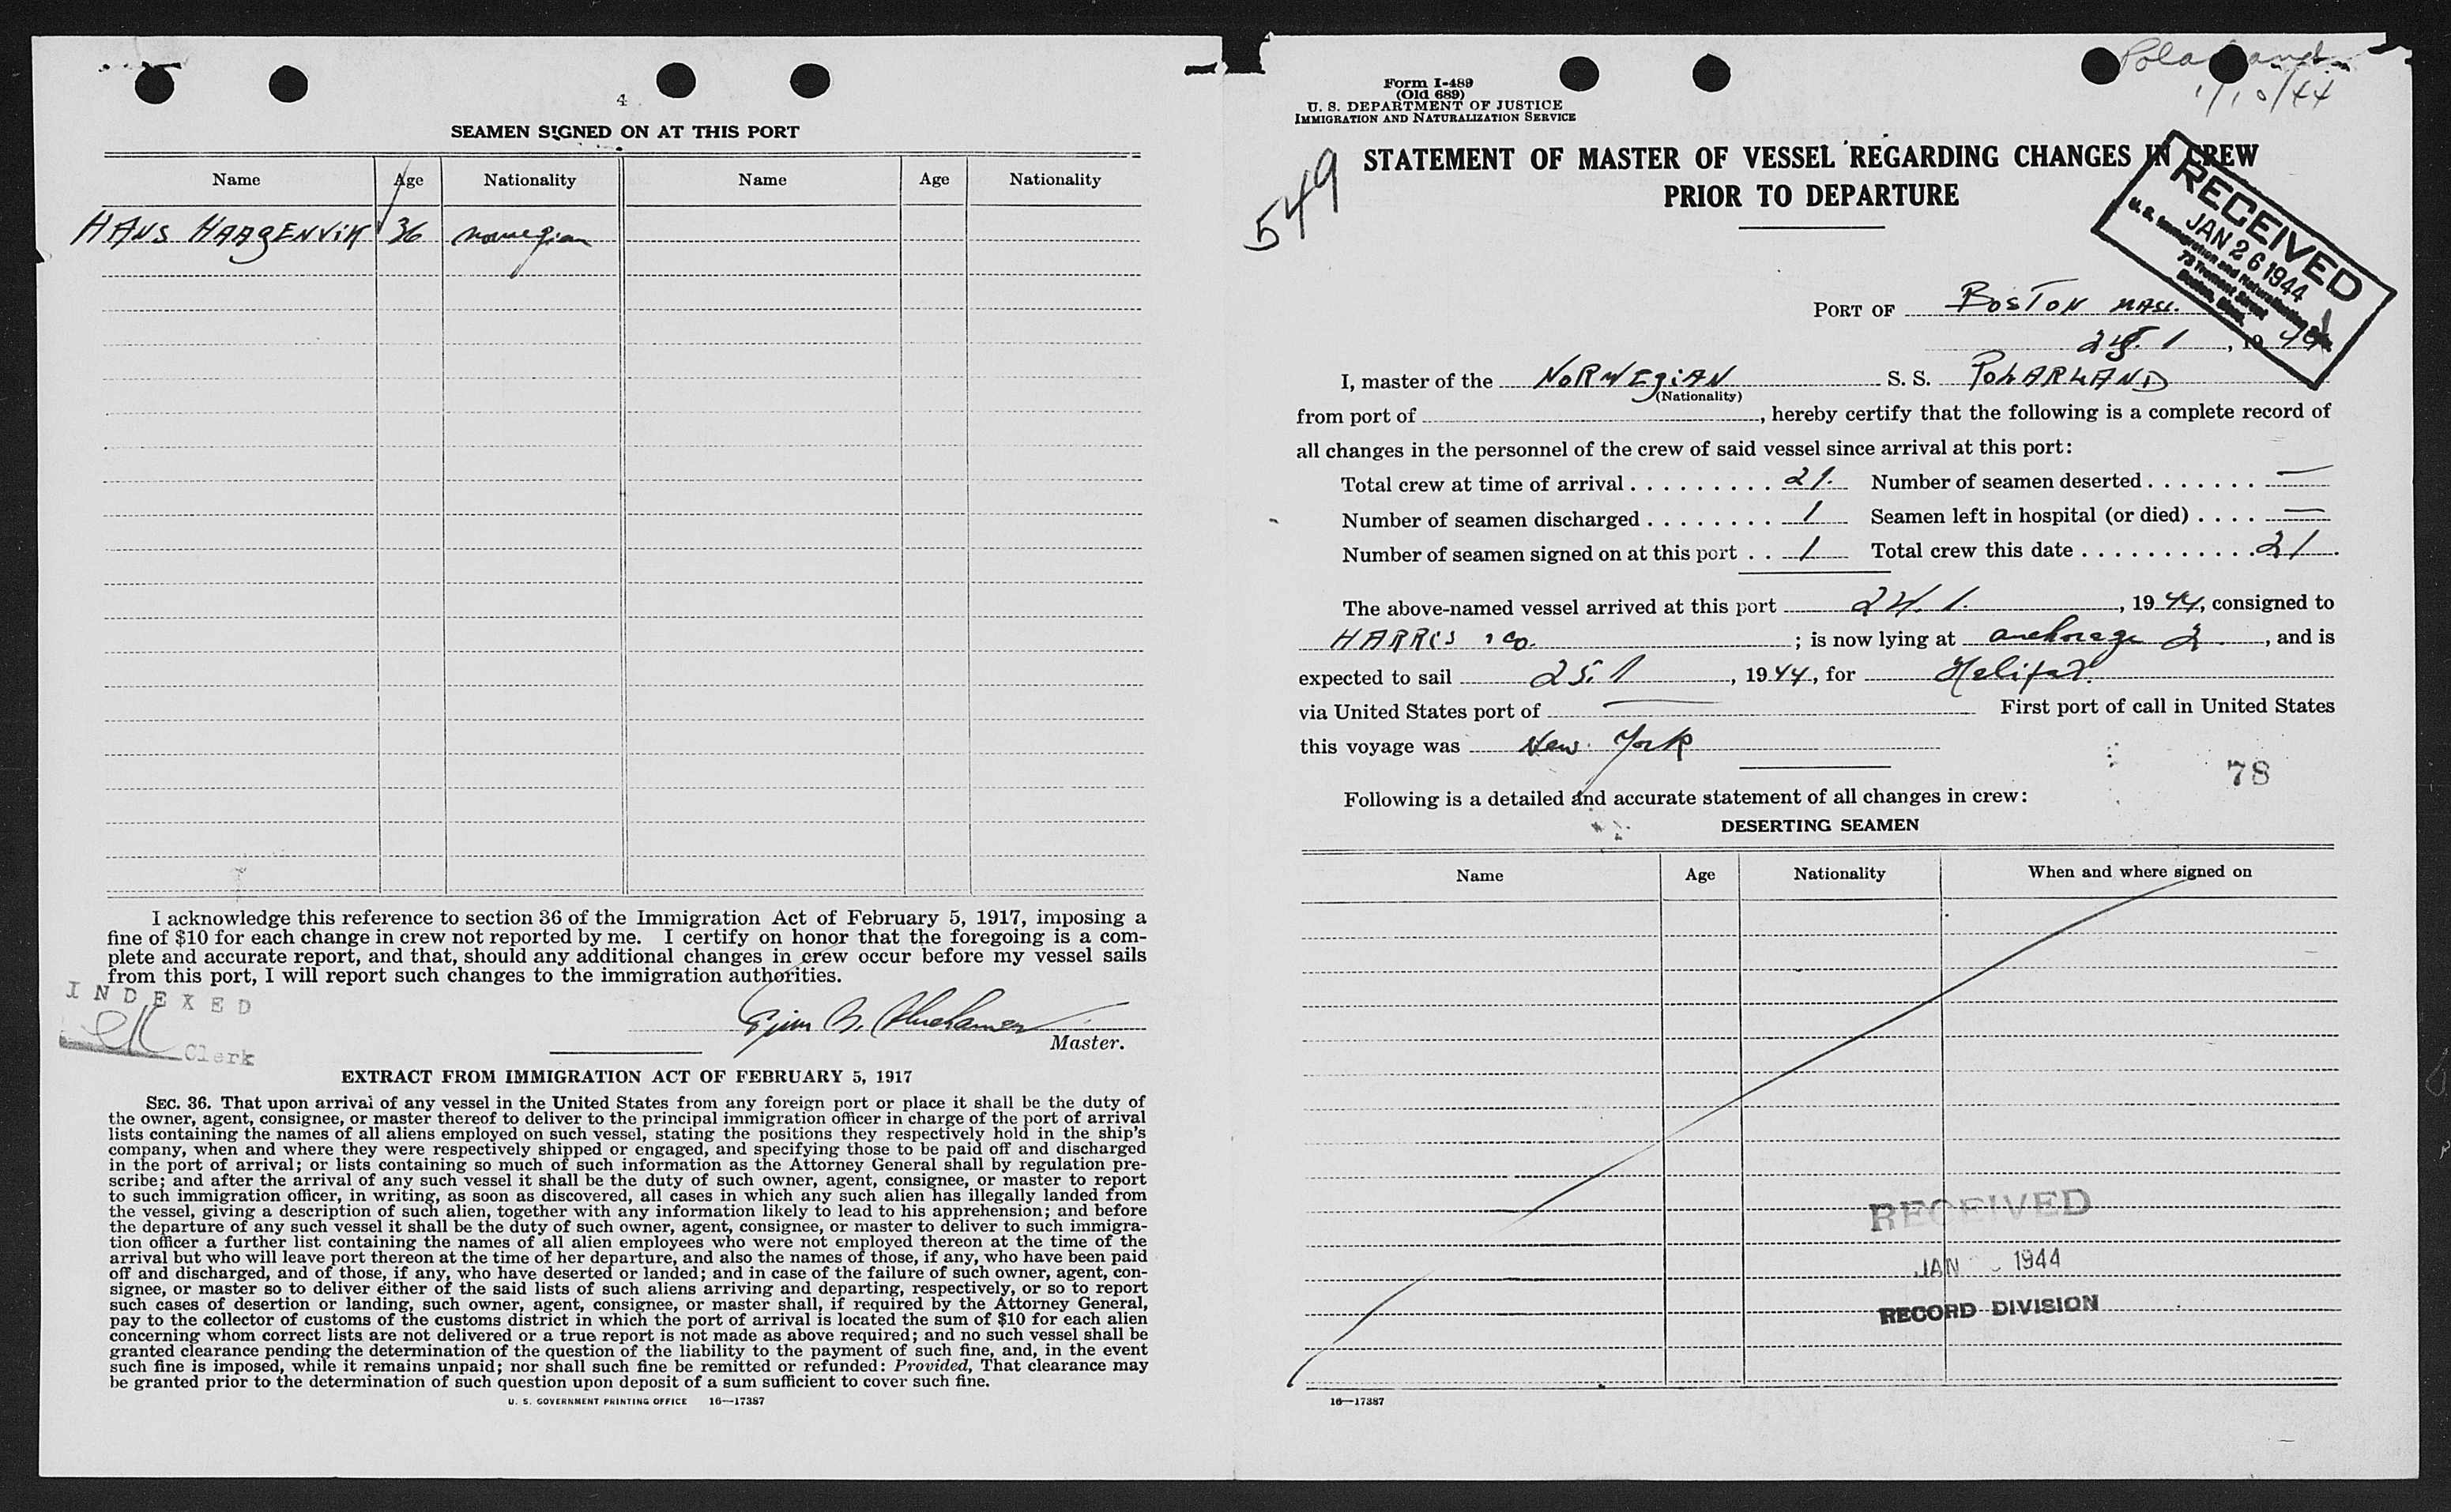 4
SEAMEN SIGNED ON AT THIS PORT
Name Age Nationality Name Age Nationality
HANS HAAGENVIK 36 norwegian
I acknowledge this reference to section 36 of the Immigration Act of February 5, 1917, imposing a
fine of $10 for each change in crew not reported by me. I certify on honor that the foregoing is a com-
plete and accurate report, and that, should any additional changes in crew occur before my vessel sails
from this port, I will report such changes to the immigration authorities.
INDEXED
Clerk
Master.
EXTRACT FROM IMMIGRATION ACT OF FEBRUARY 5, 1917
SEC. 36. That upon arrival of any vessel in the United States from any foreign port or place it shall be the duty of
the owner, agent, consignee, or master thereof to deliver to the principal immigration officer in charge of the port of arrival
lists containing the names of all aliens employed on such vessel, stating the positions they respectively hold in the ship's
company, when and where they were respectively shipped or engaged, and specifying those to be paid off and discharged
in the port of arrival; or lists containing so much of such information as the Attorney General shall by regulation pre-
scribe; and after the arrival of any such vessel it shall be the duty of such owner, agent, consignee, or master to report
to such immigration officer, in writing, as soon as discovered, all cases in which any such alien has illegally landed from
the vessel, giving a description of such alien, together with any information likely to lead to his apprehension; and before
the departure of any such vessel it shall be the duty of such owner, agent, consignee, or master to deliver to such immigra-
tion officer a further list containing the names of all alien employees who were not employed thereon at the time of the
arrival but who will leave port thereon at the time of her departure, and also the names of those, if any, who have been paid
off and discharged, and of those, if any, who have deserted or landed; and in case of the failure of such owner, agent, con-
signee, or master so to deliver either of the said lists of such aliens arriving and departing, respectively, or so to report
such cases of desertion or landing, such owner, agent, consignee, or master shall, if required by the Attorney General,
pay to the collector of customs of the customs district in which the port of arrival is located the sum of $10 for each alien
concerning whom correct lists are not delivered or a true report is not made as above required; and no such vessel shall be
granted clearance pending the determination of the question of the liability to the payment of such fine, and, in the event
such fine is imposed, while it remains unpaid; nor shall such fine be remitted or refunded: Provided, That clearance may
be granted prior to the determination of such question upon deposit of a sum sufficient to cover such fine.
U. S. GOVERNMENT PRINTING OFFICE 16—17387
1/10/44
Form I-489
(Old 689)
U. S. DEPARTMENT OF JUSTICE
IMMIGRATION AND NATURALIZATION SERVICE
549
STATEMENT OF MASTER OF VESSEL REGARDING CHANGES IN CREW
PRIOR TO DEPARTURE
RECEIVED
JAN 26 1944
PORT OF BOSTON MASS.
, 19 44
I, master of the NORWEGIAN S. S. POLARLAND
(Nationality)
from port of , hereby certify that the following is a complete record of
all changes in the personnel of the crew of said vessel since arrival at this port:
Total crew at time of arrival 21. Number of seamen deserted —
Number of seamen discharged 1 Seamen left in hospital (or died) —
Number of seamen signed on at this port 1 Total crew this date 21
The above-named vessel arrived at this port 24. 1. , 1944, consigned to
HARRIS & CO. ; is now lying at anchorage 2 , and is
expected to sail 25. 1 , 1944, for Halifax.
via United States port of — First port of call in United States
this voyage was New York
78
Following is a detailed and accurate statement of all changes in crew:
DESERTING SEAMEN
Name Age Nationality When and where signed on
RECEIVED
JAN 1944
RECORD DIVISION
16—17387